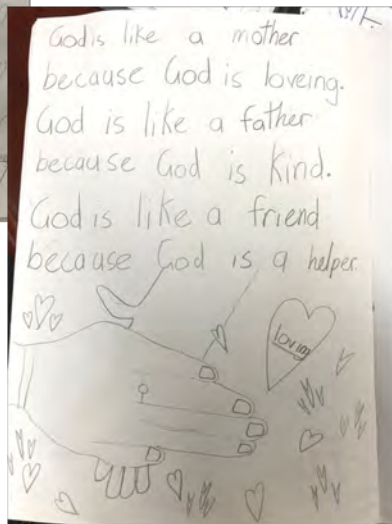 God is like a mother
because God is loveing.
God is like a father
because God is kind.
God is like a friend
because God is a helper.
loving